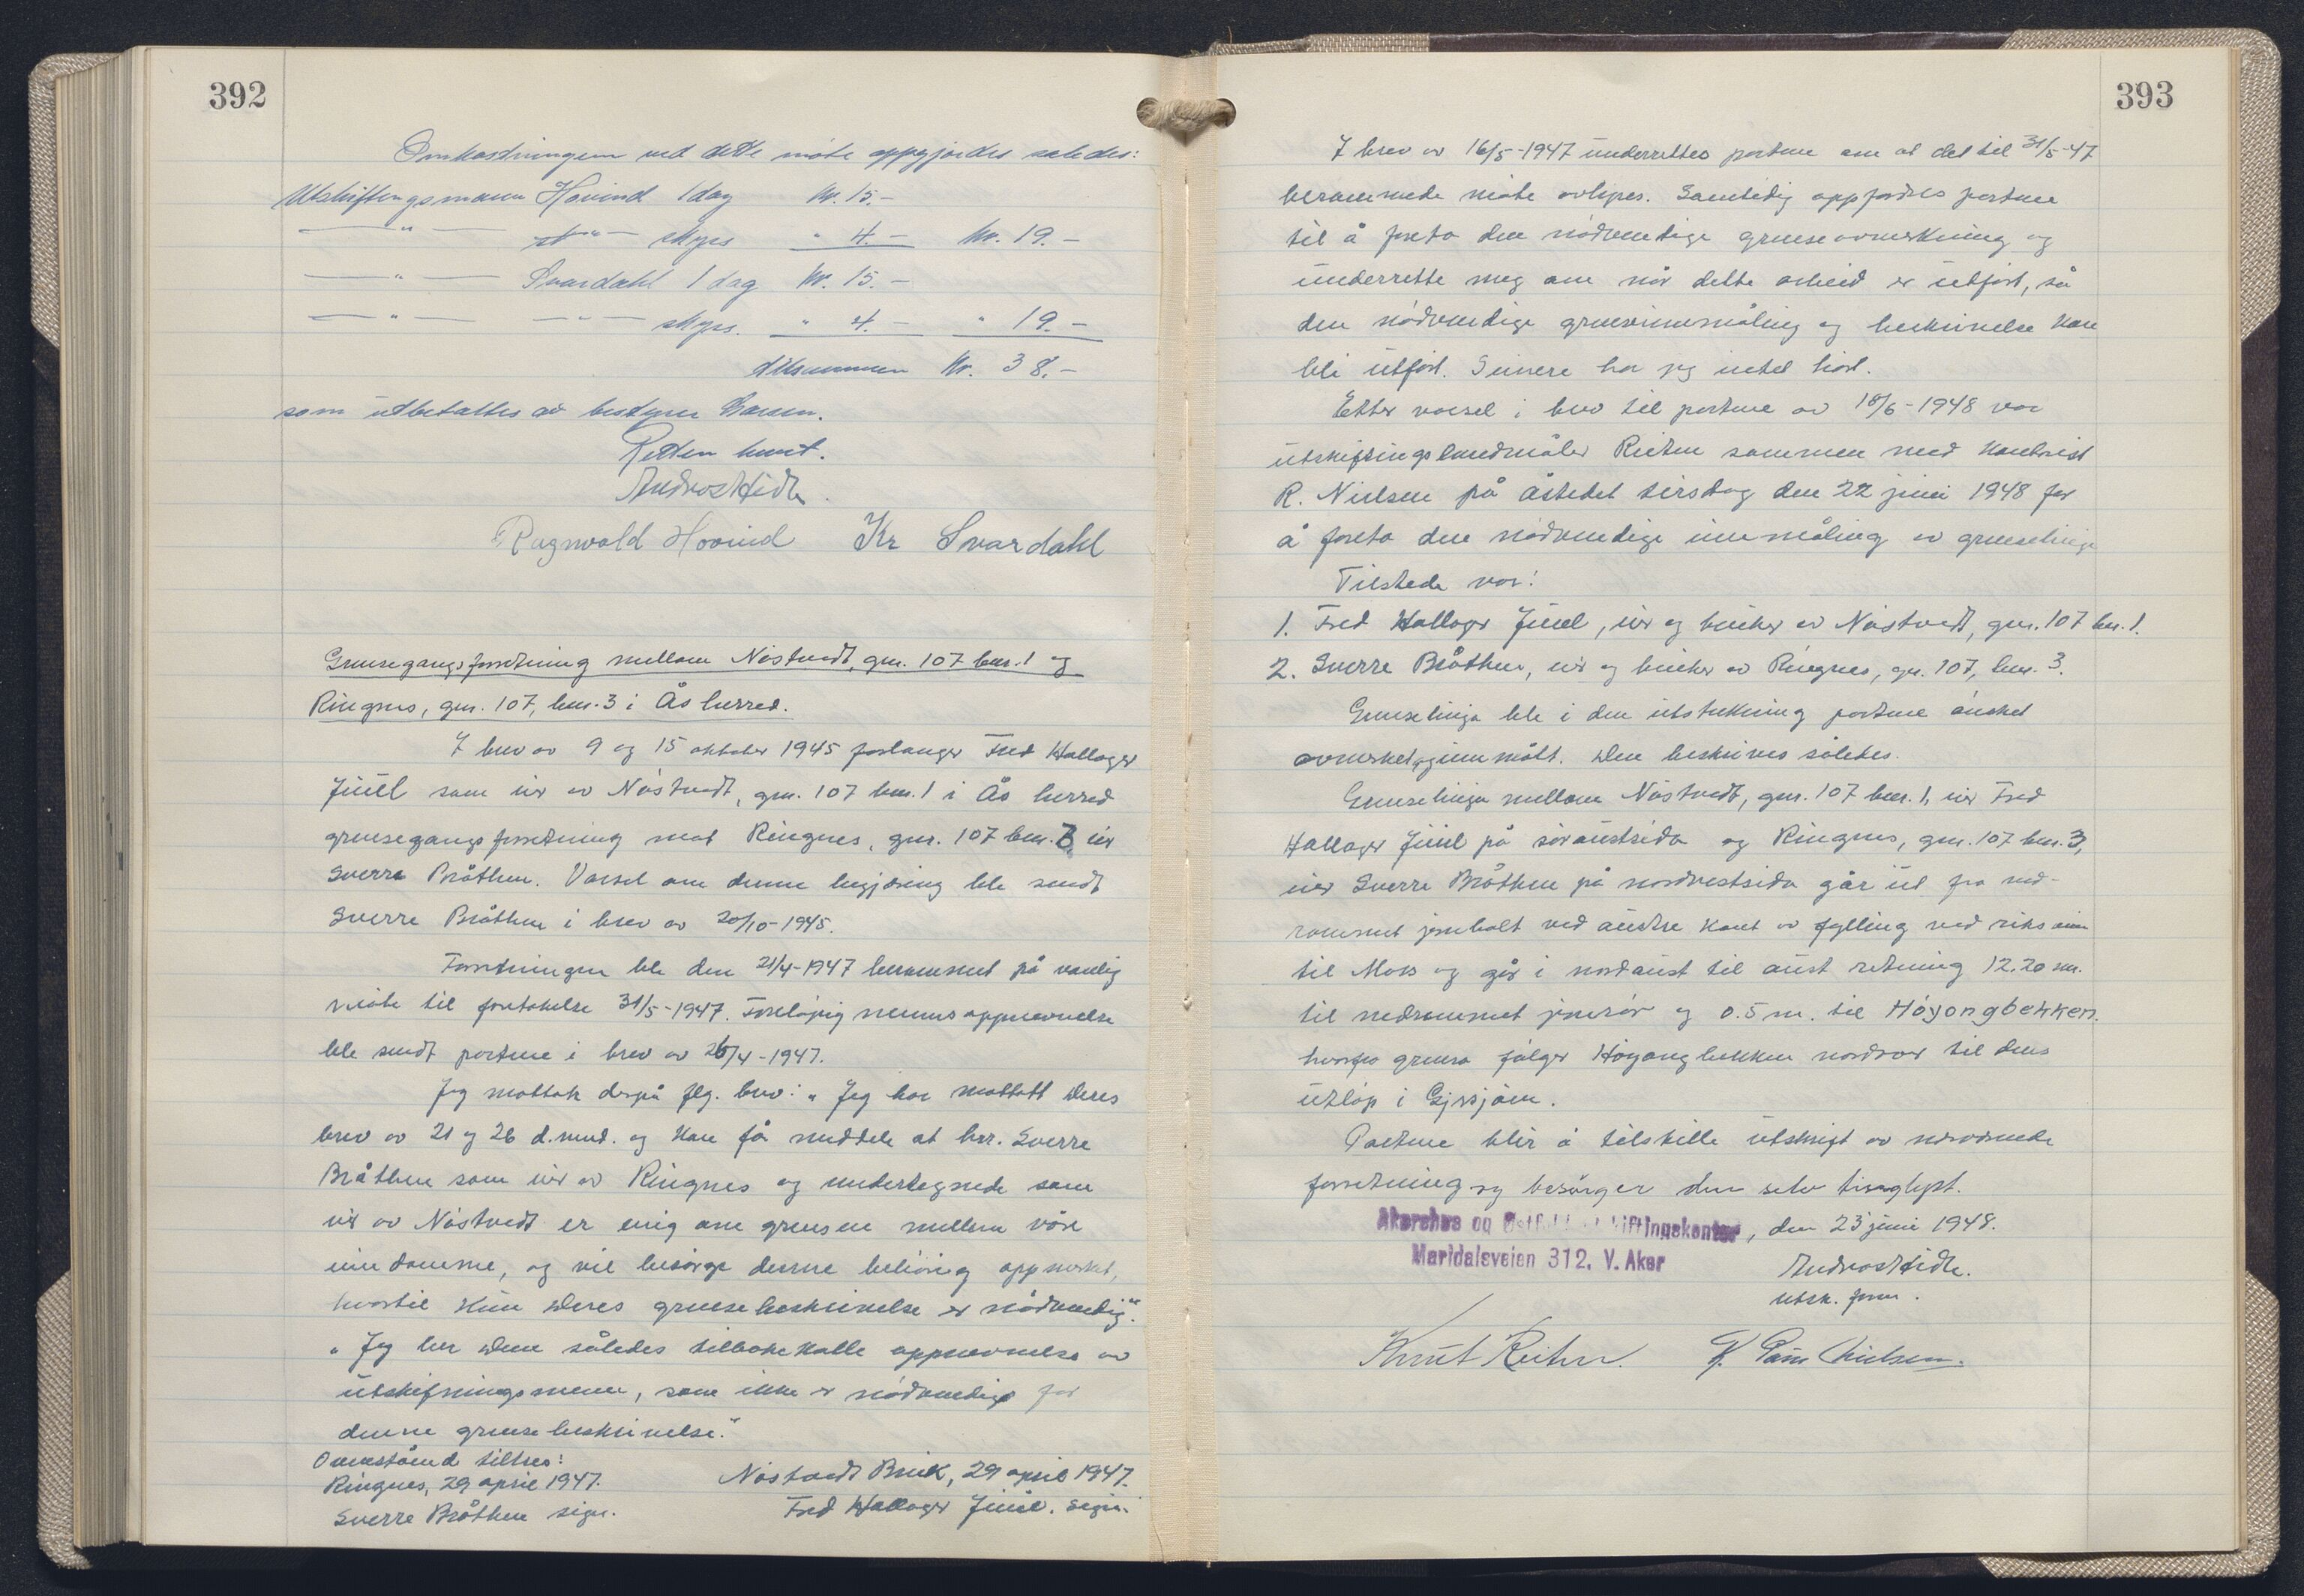 392
Omkostningene ved dette møte oppgjordes således:
Utskiftingsmann Hovind 1 dag kr. 15.-
— " — — " — skyss " 4.- kr. 19.-
— " — Svardahl 1 dag kr. 15.-
— " — — " — skyss. " 4.- " 19.-
tilsammen kr. 38.-
som utbetaltes av bestyrer
Retten hevet.
Ragnvald Hovind Kr Svardahl
Grensegangsforretning mellom Nøstvedt, gnr. 107 bnr. 1 og
Ringnes, gnr. 107, bnr. 3 i Ås herred.
I brev av 9 og 15 oktober 1945 forlanger Fred Hallager
Juul som eier av Nøstvedt, gnr. 107 bnr. 1 i Ås herred
grensegangsforretning mot Ringnes, gnr. 107 bnr. 3, eier
Sverre Bråthen. Varsel om denne begjæring ble sendt
Sverre Bråthen i brev av 20/10-1945.
Forretningen ble den 21/4-1947 berammet på vanlig
måte til foretakelse 31/5-1947. Foreløpig menns oppnevnelse
ble sendt partene i brev av 26/4-1947.
Jeg mottok derpå flg. brev: „Jeg har mottatt Deres
brev av 21 og 26 d.mnd. og kan få meddele at herr. Sverre
Bråthen som eier av Ringnes og undertegnede som
eier av Nøstvedt er enig om grensen mellem våre
eiendomme, og vil besørge denne behørig oppmerket,
hvortil kun Deres grensebeskrivelse er nødvendig."
„Jeg ber Dem således tilbakekalle oppnevnelse av
utskiftningsmenn, som ikke er nødvendige for
denne grensebeskrivelse."
Ovenstående tiltres:
Ringnes, 29 april 1947. Nøstvedt Bruk, 29 april 1947.
Sverre Bråthen sign. Fred Hallager Juul. sign.
393
I brev av 16/5-1947 underrettes partene om at det til 31/5-47
berammede møte avlyses. Samtidig oppfordres partene
til å foreta den nødvendige grenseavmerkning og
underrette meg om når dette arbeid er utført, så
den nødvendige grenseinnmåling og beskrivelse kan
bli utført. Seinere har jeg intet hørt.
Etter varsel i brev til partene av 18/6-1948 var
utskiftingslandmåler Reiten sammen med kontorist
R. Nielsen på åstedet tirsdag den 22 juni 1948 for
å foreta den nødvendige innmåling av grenselinja
Tilstede var:
1. Fred Hallager Juul, eier og bruker av Nøstvedt, gnr. 107 bnr. 1.
2. Sverre Bråthen, eier og bruker av Ringnes, gnr. 107, bnr. 3.
Grenselinja ble i den utstrekning partene ønsket
avmerket, og innmålt. Den beskrives således.
Grenselinja mellom Nøstvedt, gnr. 107 bnr. 1, eier Fred
Hallager Juul på søraustsida og Ringnes, gnr. 107 bnr. 3,
eier Sverre Bråthen på nordvestsida går ut fra ned-
rammet jernbolt ved austre kant av fylling ved riksveien
til Moss og går i nordaust til aust retning 12.20 m.
til nedrammet jernrør og 0.5 m. til Høyongbekken.
hvorfra grensa følger Høyongbekken nordover til dens
utløp i Gjersjøen.
Partene blir å tilstille utskrift av nærværende
forretning og besørger den selv tinglyst.
Akershus og Østfold utskiftingskontor, den 23 juni 1948.
Maridalsveien 312. V. Aker
utsk. form.
Knut Reiten.